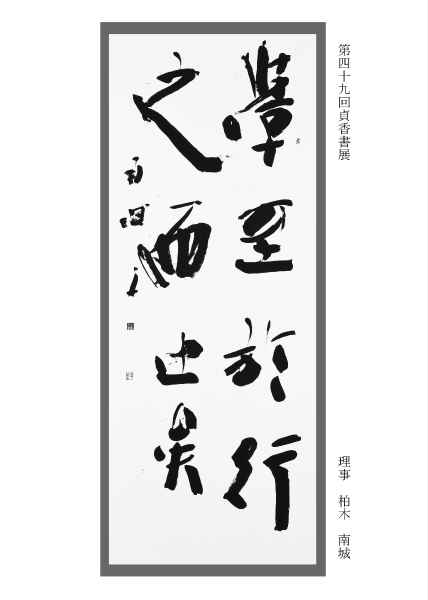 第四十九回貞香書展
理事　柏木　南城
學至於行
之而止矣